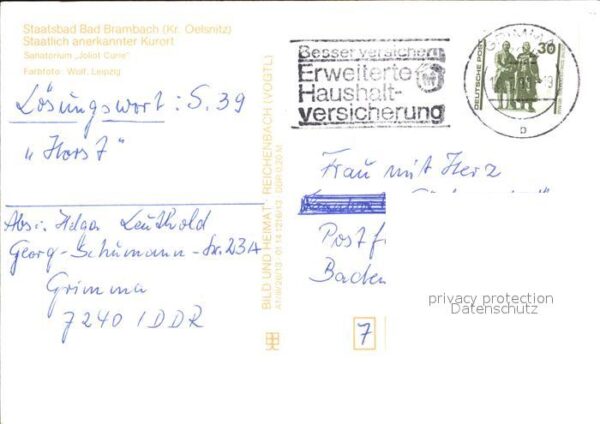 Staatsbad Bad Brambach (Kr. Oelsnitz)
Staatlich anerkannter Kurort
Sanatorium „Joliot Curie"
Farbfoto: Wolf, Leipzig
Lösungswort: S. 39
„Horst"
Abs.: Helga Leuthold
Georg-Schumann-Str. 23A
Grimma
7240 / DDR
BILD UND HEIMAT REICHENBACH (VOGTL)
DDR 0,20 M
Besser versichern
Erweiterte
Haushalt-
versicherung
GRIMMA
DEUTSCHE POST
30
Frau mit Herz
Postf
Baden
privacy protection
Datenschutz
7